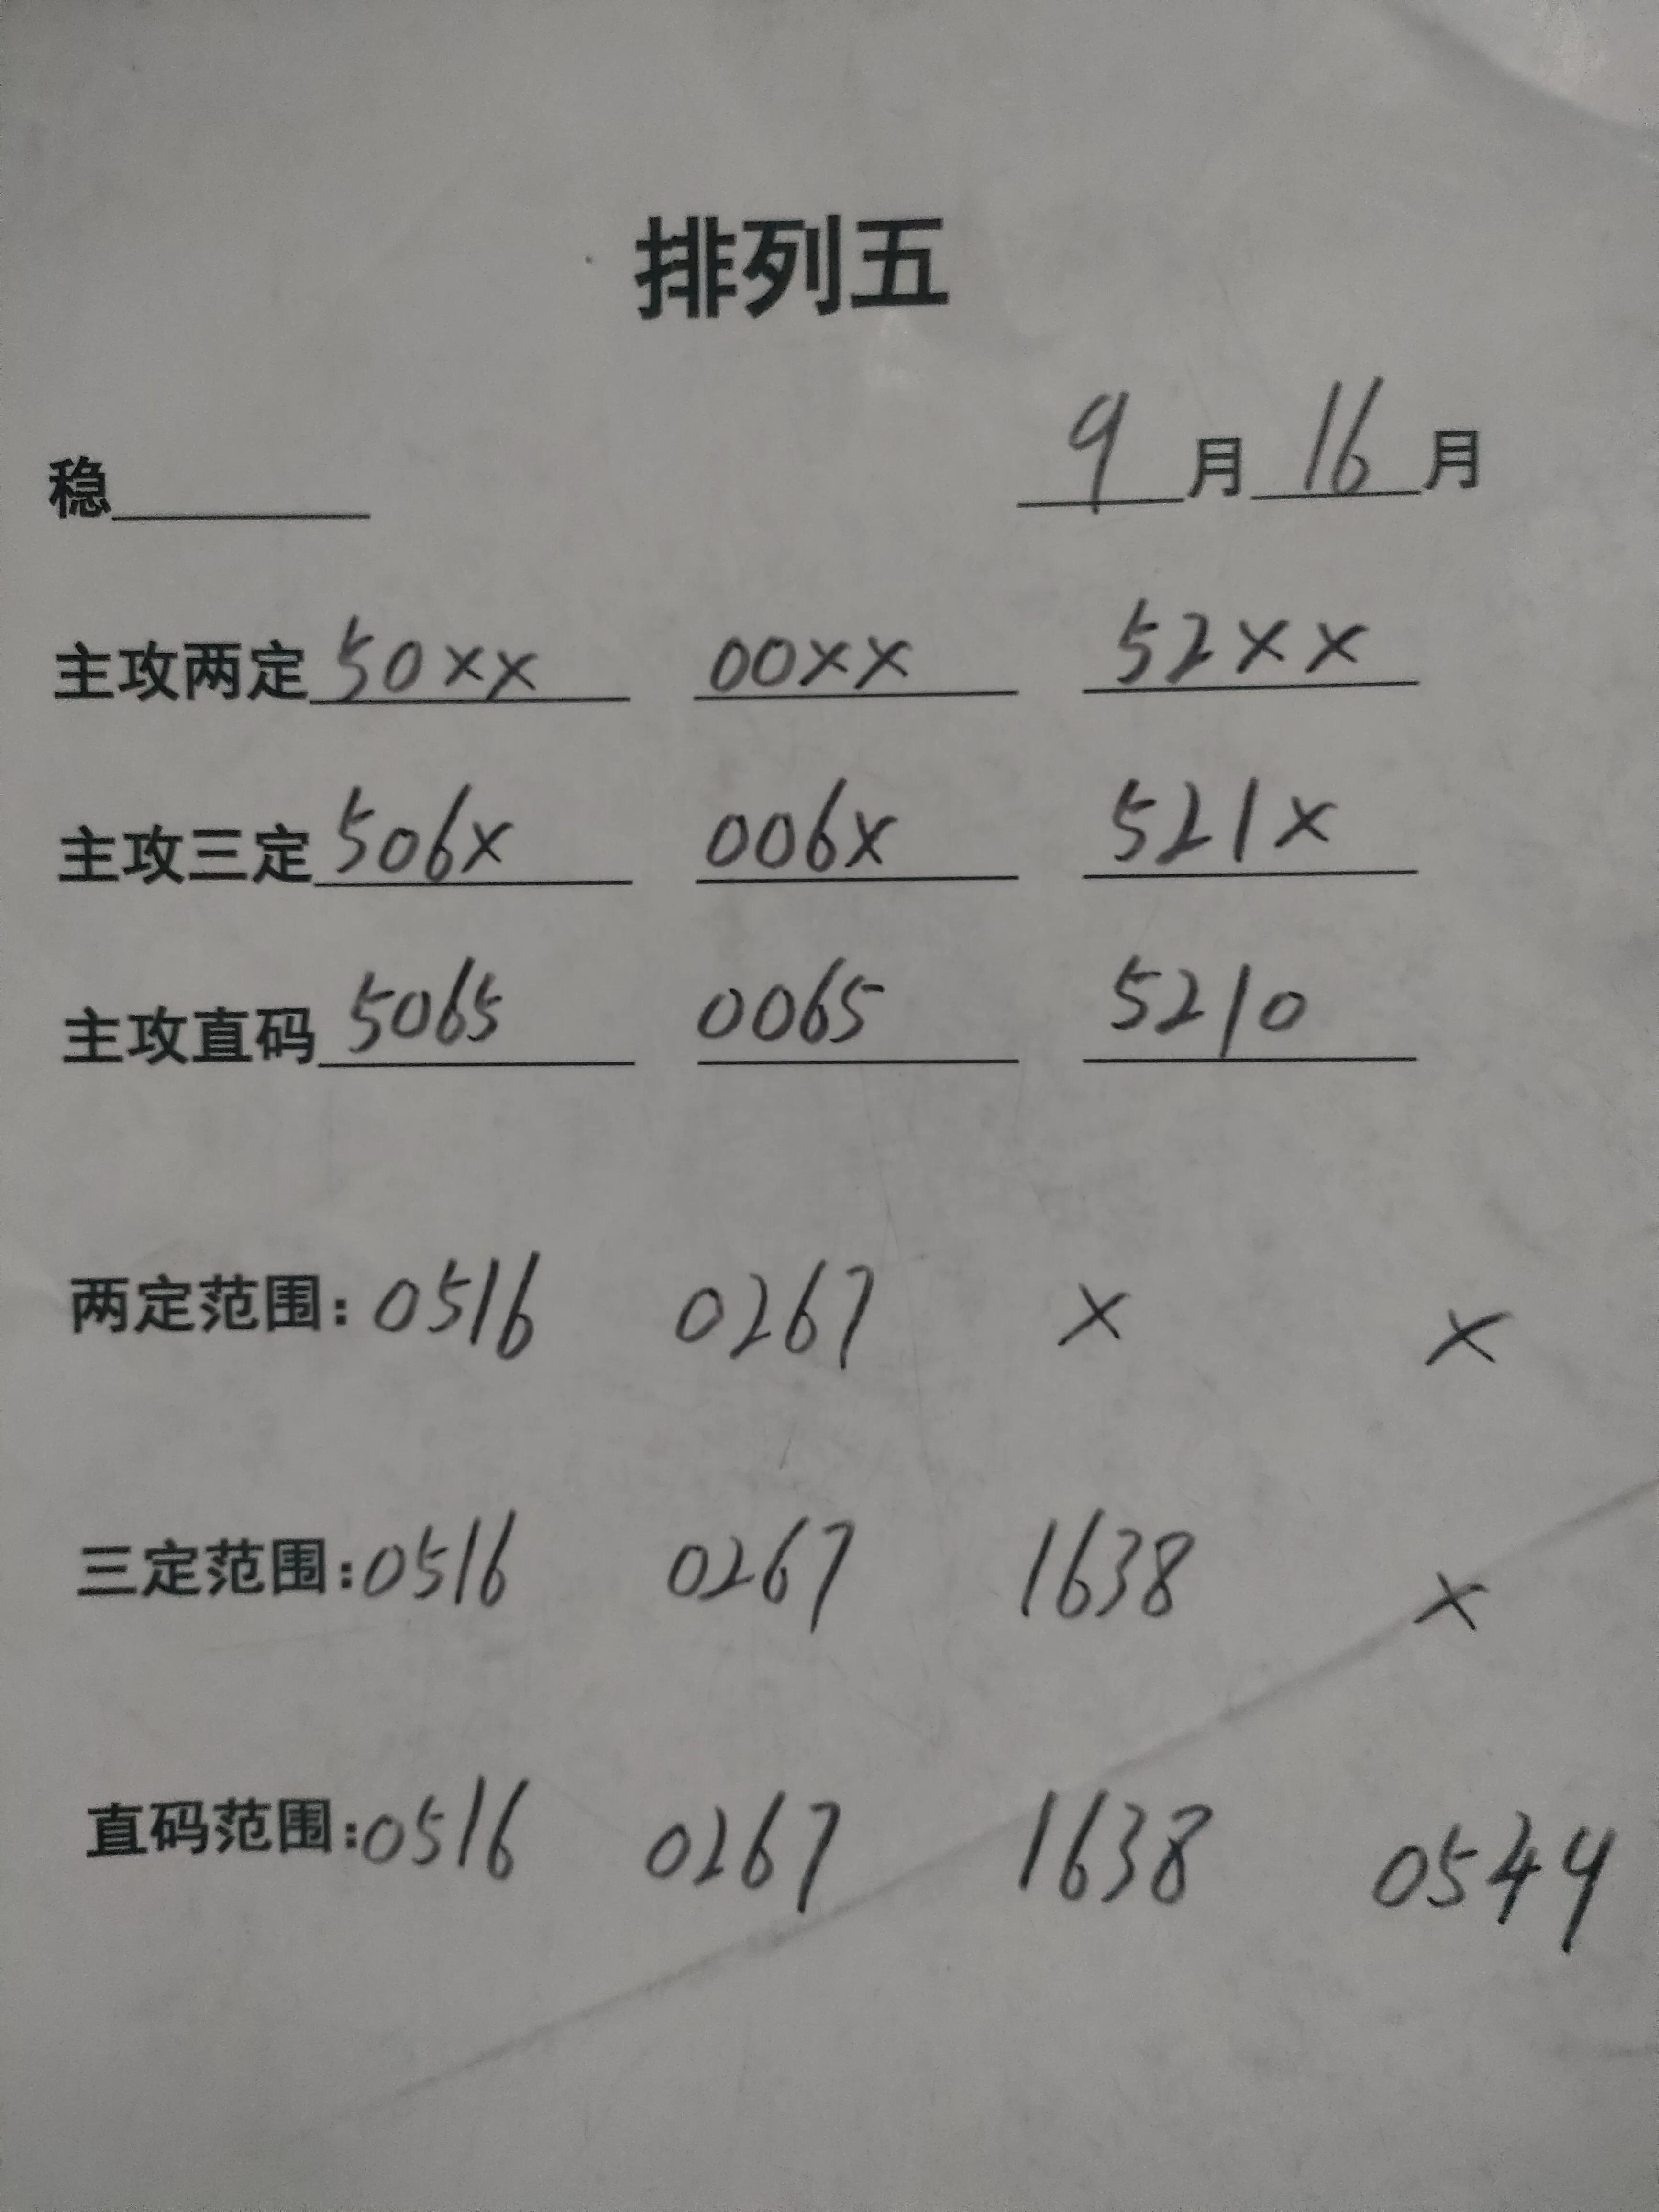 排列五
稳______ 9月16月
主攻两定 50xx 00xx 52xx
主攻三定 506x 006x 521x
主攻直码 5065 0065 5210
两定范围: 0516 0267 x x
三定范围: 0516 0267 1638 x
直码范围: 0516 0267 1638 0549